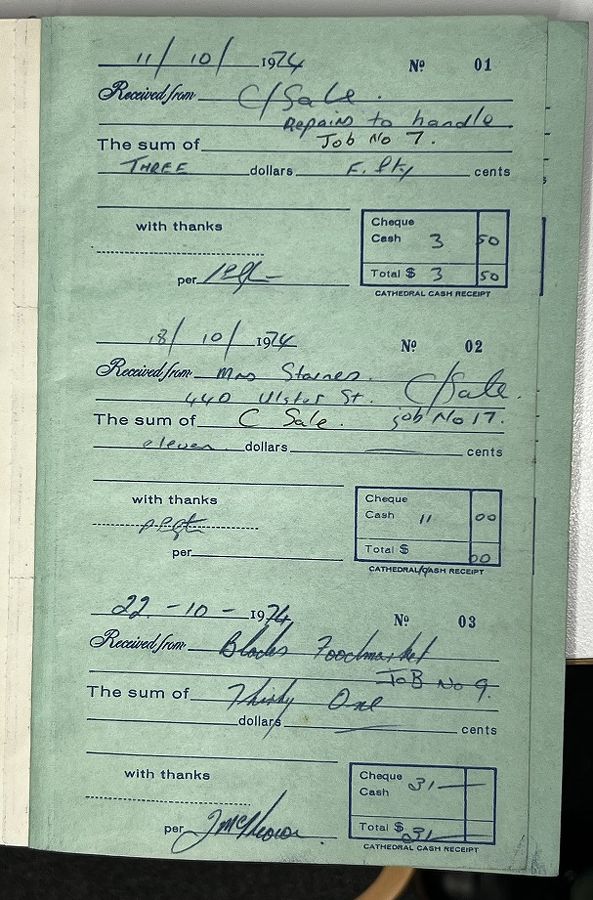 11/ 10/ 1974 Nº 01
Received from C/Sale.
Repairs to handle
The sum of Job No 7.
THREE dollars Fifty cents
with thanks
Cheque
Cash 3 50
Total $ 3 50
per
CATHEDRAL CASH RECEIPT
18/ 10/ 1974 Nº 02
Received from Mrs Staines. C/Sale.
440 Ulster St.
The sum of C Sale. job No 17.
eleven dollars — cents
with thanks
Cheque
Cash 11 00
Total $ 00
per
CATHEDRAL CASH RECEIPT
22 - 10 - 1974 Nº 03
Received from Blades Foodmarket
JOB No 9.
The sum of Thirty One
dollars — cents
with thanks
Cheque 31 —
Cash
Total $ 31 —
per
CATHEDRAL CASH RECEIPT